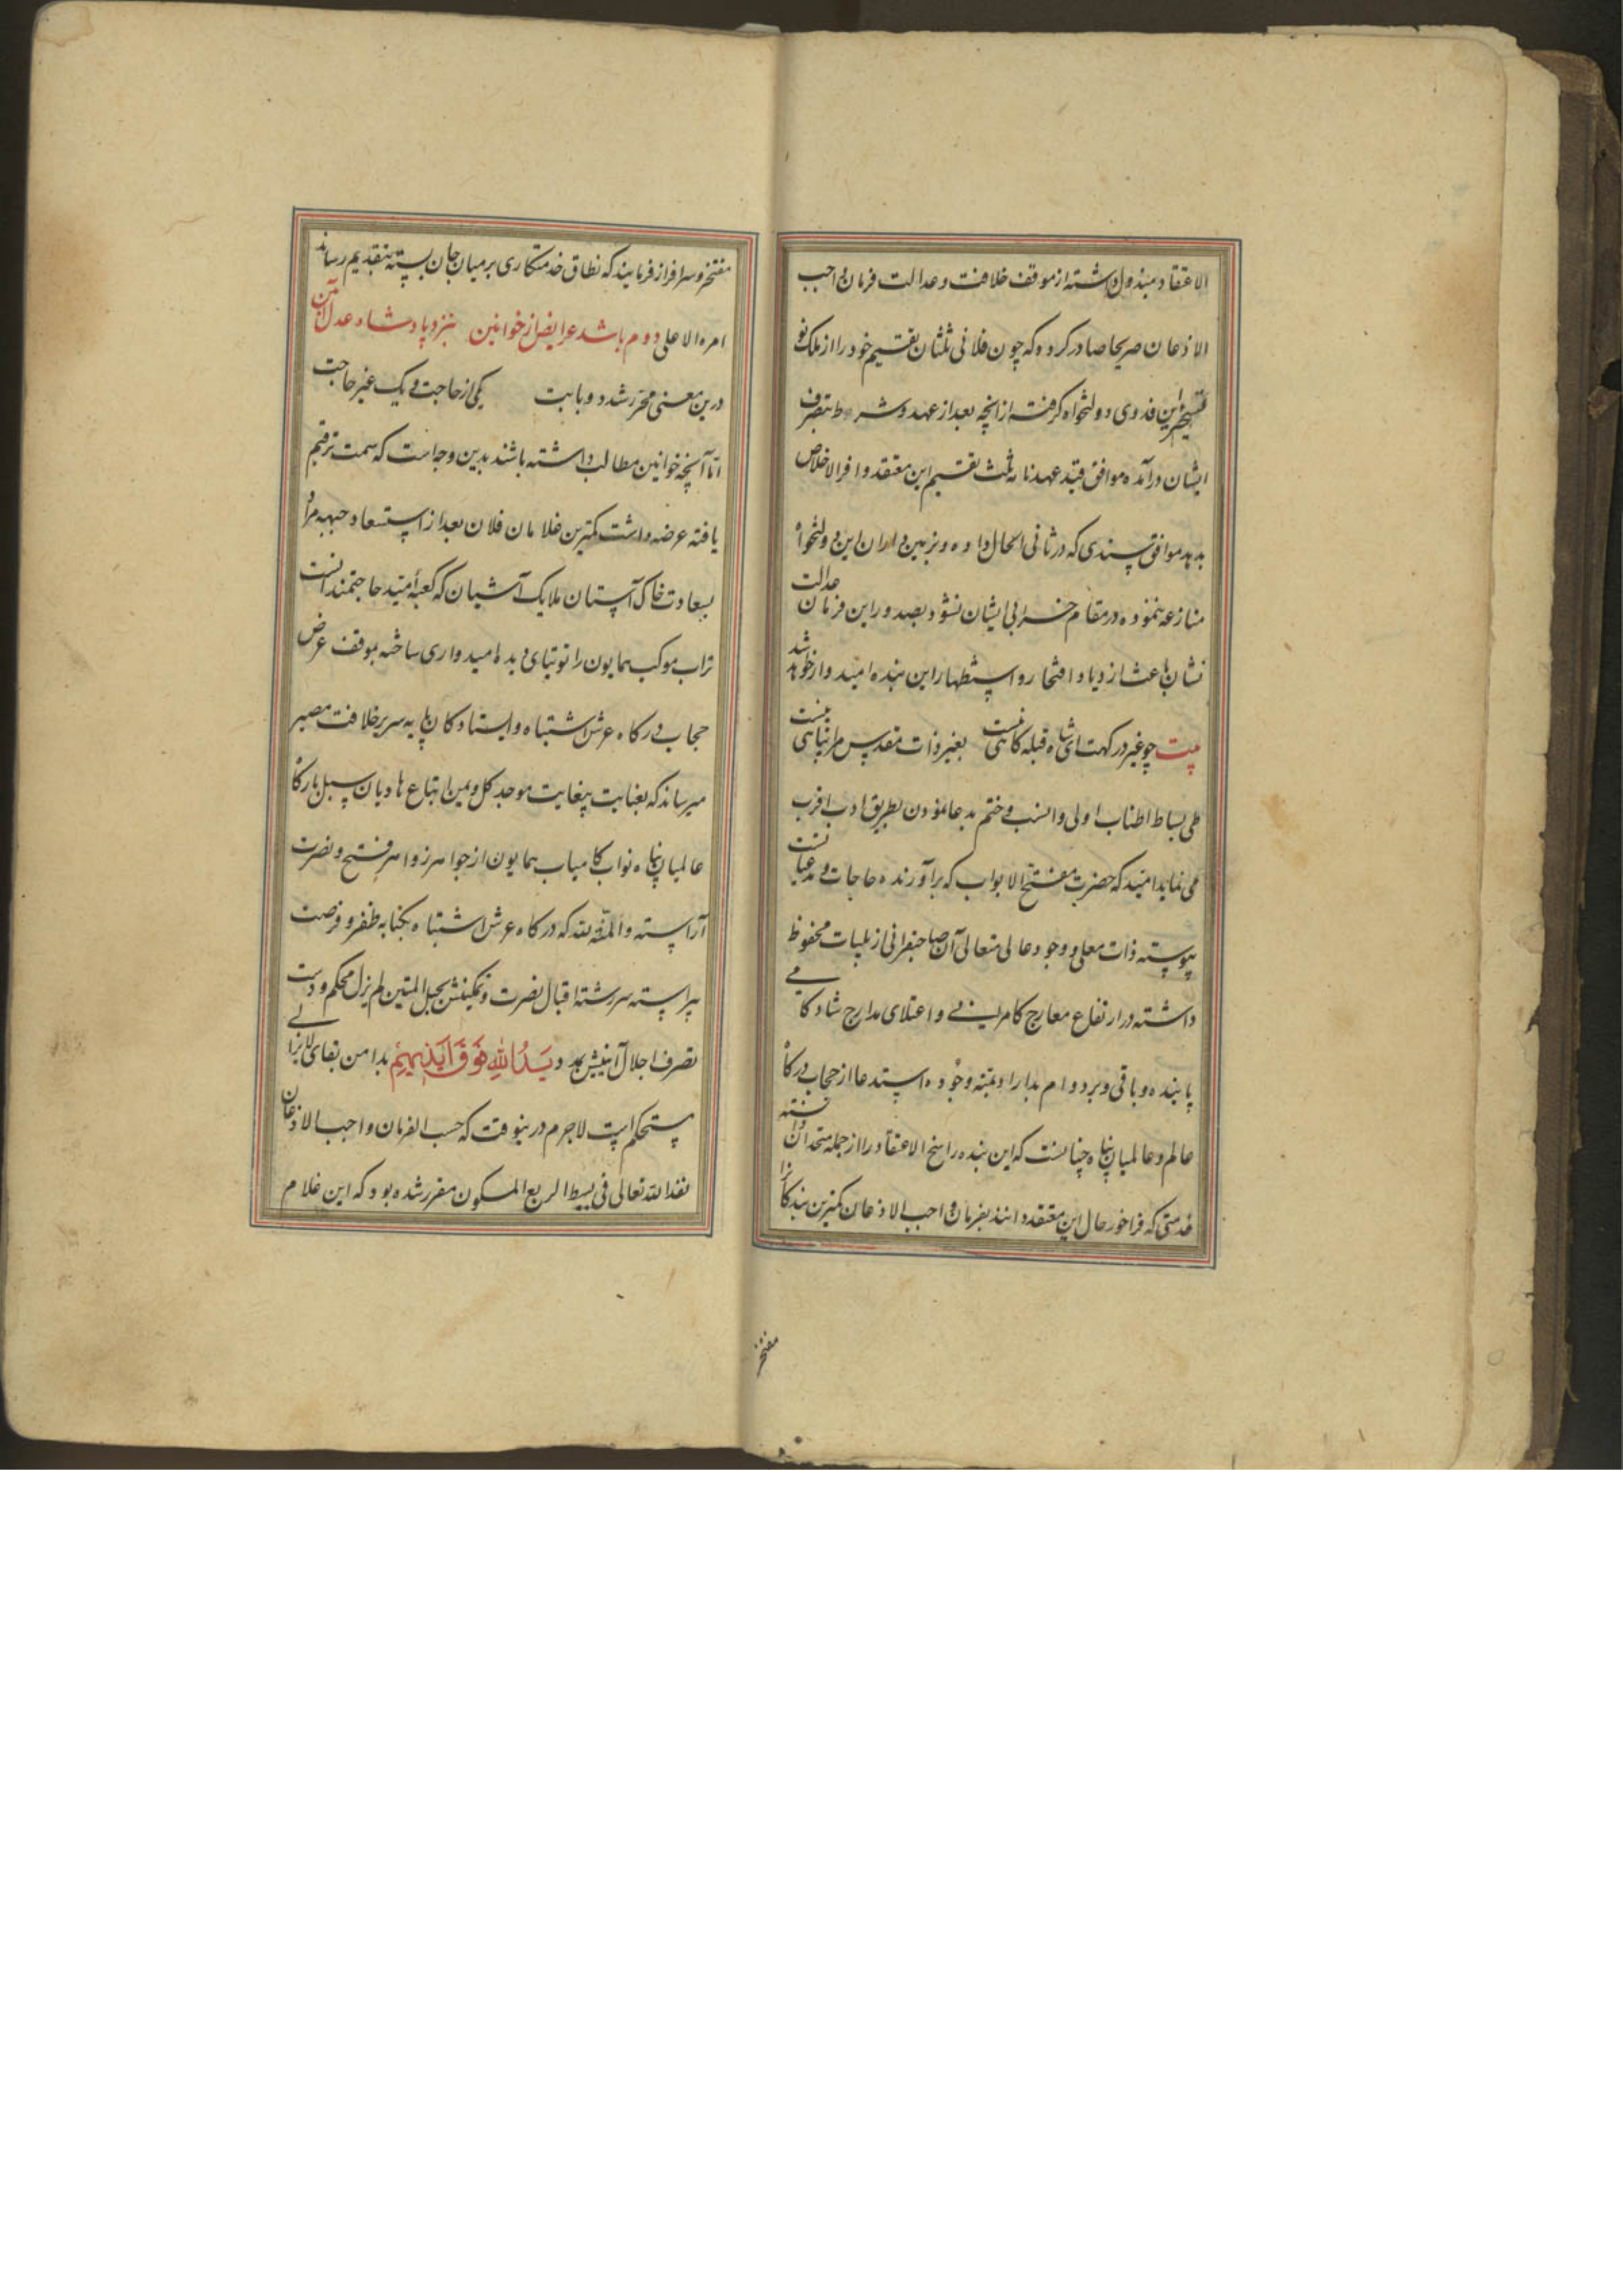 الاعتقاد مبذول داشته از موقف خلافت و عدالت فرمان واجب
الاذعان صریحا صادر کرده که چون فلانی ثلثان بقسیم خود را از ملک نو
تسخیر این فدوی دولتخواه گرفته از آنچه بعد از عهد و شرط بتصرف
ایشان درآمده موافق قید عهدنامه ثلث بقسیم این معتقد وافر الاخلاص
بدهد موافق سندی که در ثانی الحال داده و بزمین داران این دولتخواه
منازعه ننموده در مقام خرابی ایشان نشود بصدور این فرمان عدالت
نشان باعث ازدیاد افتخار و استظهار این بنده امیدوار خواهد شد
بیت چو غیر درگهت ای شاه قبله گاهی نیست بغیر ذات مقدس مرا پناهی نیست
طی بساط اطناب اولی و انسب و ختم بدعا نمودن بطریق ادب اقرب
می نماید امید که حضرت مفتح الابواب که برآورنده حاجات و مدعیاتست
پیوسته ذات معلی و وجود عالی متعالی آن صاحبقرانی از بلیات محفوظ
داشته در ارتفاع معارج کامرانی و اعتلای مدارج شادکامی
پاینده و باقی و بر دوام بداراد بمنه وجوده استدعا از حجاب درگاه
عالم و عالمیان پناه چنانست که این بنده راسخ الاعتقاد را از جمله متحدان دانسته
خدمتی که فراخور حال این معتقد دانند بفرمان واجب الاذعان کمترین بندگانرا
مفتخر
مفتخر و سرافراز فرمایند که نطاق خدمتکاری بر میان جان بسته بتقدیم رساند
امره الاعلی دوم باشد عرایض از خوانین بنزد پادشاه عدل آئین
درین معنی محرر شد دو بابت یکی از حاجت و یک غیر حاجت
اما آنچه خوانین مطالب داشته باشند بدین وجه است که سمت ترقیم
یافته عرضه داشت کمترین غلامان فلان بعد از استسعاد جبهه مراد
بسعادت خاک آستان ملایک آشیان که کعبه امید حاجتمندانست
تراب موکب همایون را توتیای دیده امیدواری ساخته بموقف عرض
حجاب درگاه عرش اشتباه و ایستادگان پایه سریر خلافت مصیر
میرساند که بعنایت بیغایت موجد کل و یمن اتباع هادیان سبل بارگاه
عالمیان پناه نواب کامیاب همایون از جواهر زواهر فتح و نصرت
آراسته والمنة لله که درگاه عرش اشتباه بکتابه ظفر و فرصت
پیراسته سررشته اقبال نصرت و تمکینش بحبل المتین لم یزل محکم و دست
تصرف اجلال آیینش بمدد یَدُ اللهِ فَوْقَ اَیْدِیهِمْ بدامن بقای لایزالی
مستحکم است لاجرم درینوقت که حسب الفرمان واجب الاذعان
نفذ الله تعالی فی بسیط الربع المسکون مقرر شده بود که این غلام